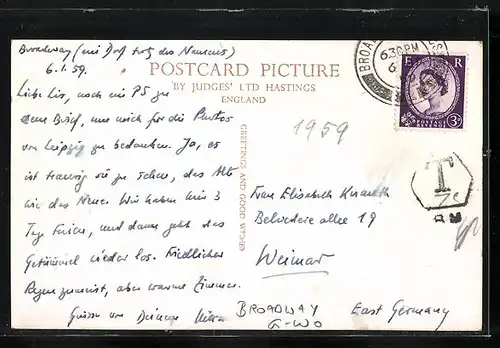 Broadway (ein Dorf trotz des Namens)
6.1.59.
POSTCARD PICTURE
BY JUDGES' LTD HASTINGS
ENGLAND
GREETINGS AND GOOD WISHES
Liebe Lis, noch ein PS zu
dem Brief, um mich für die Photos
von Leipzig zu bedanken. Ja, es
ist traurig sie zu sehen, das Alte
wie das Neue. Wir haben hier 3
Tage Ferien, und dann geht das
Getümmel wieder los. Friedlicher
Regen zumeist, aber warme Zimmer.
Grüsse von Deinem
1959
Frau Elisabeth
Belvedere allee 19
Weimar
East Germany
BROADWAY
G-WO
BROAD
6.30PM
E R
POSTAGE REVENUE
3D
T